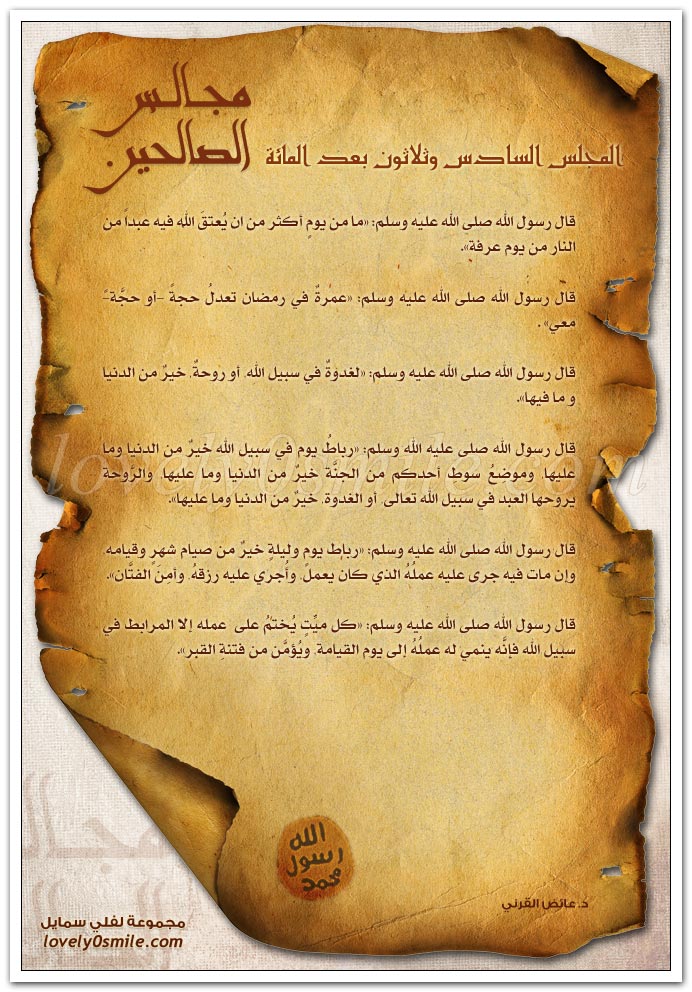 مجالس
الصالحين
المجلس السادس وثلاثون بعد المائة
قال رسول الله صلى الله عليه وسلم: «ما من يومٍ أكثر من ان يُعتقَ اللّه فيه عبداً من
النار من يوم عرفة».
قال رسول الله صلى الله عليه وسلم: «عمرةٌ في رمضان تعدلُ حجةً -أو حجَّة-ً
معي» .
قال رسول الله صلى الله عليه وسلم: «لغدوَةٌ في سبيل الله، أو روحةٌ، خيرٌ من الدنيا
و ما فيها».
قال رسول الله صلى عليه الله وسلم: «رباطُ يوم في سبيل الله خيرٌ من الدنيا وما
عليها، وموضعُ سوطِ أحدكم من الجنَّة خيرٌ من الدنيا وما عليها، والرَّوحة
يروحها العبد في سبيل الله تعالى، أو الغدوَة، خيرٌ من الدنيا وما عليها».
قال رسول الله صلى الله عليه وسلم: «رباط يوم وليلةٍ خيرٌ من صيام شهرٍ وقيامه،
وإن مات فيه جرى عليه عملُهُ الذي كان يعملُ، وأُجري عليه رزقهُ، وأمِنَ الفتَّان».
قال رسول الله صلى الله عليه وسلم: «كل ميِّتٍ يُختمُ على عمله إلا المرابط في
سبيل الله فإنَّه ينمي له عملُهُ إلى يوم القيامة، ويُؤمَّن من فتنةِ القبر».
الله
رسول
محمد
د.عائض القرني
مجموعة لفلي سمايل
lovely0smile.com
lovely0smile.com